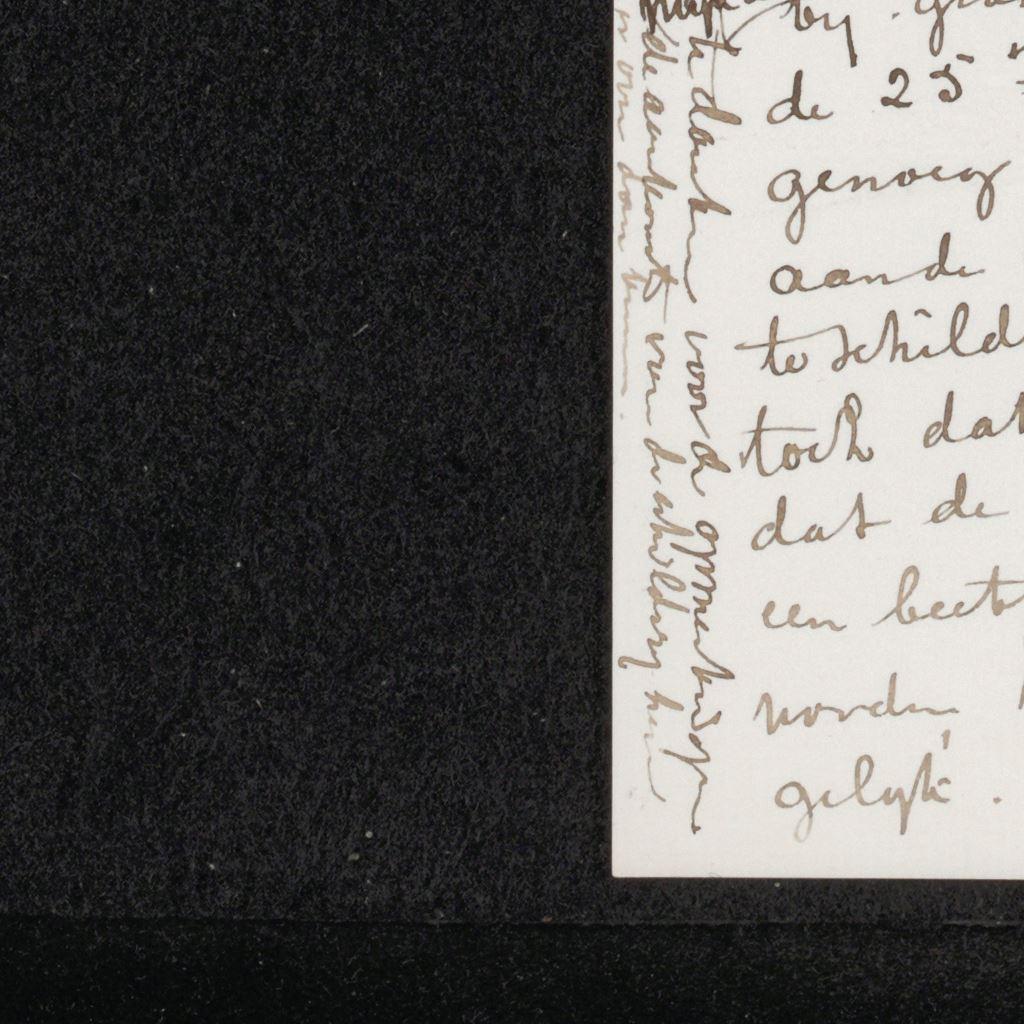 by
de 25
genoeg
aande
te schild
toch dat
dat de
een beet
worden
gelyk.
te danken voor de opmerkingen.
de aankomst van de schildery hier